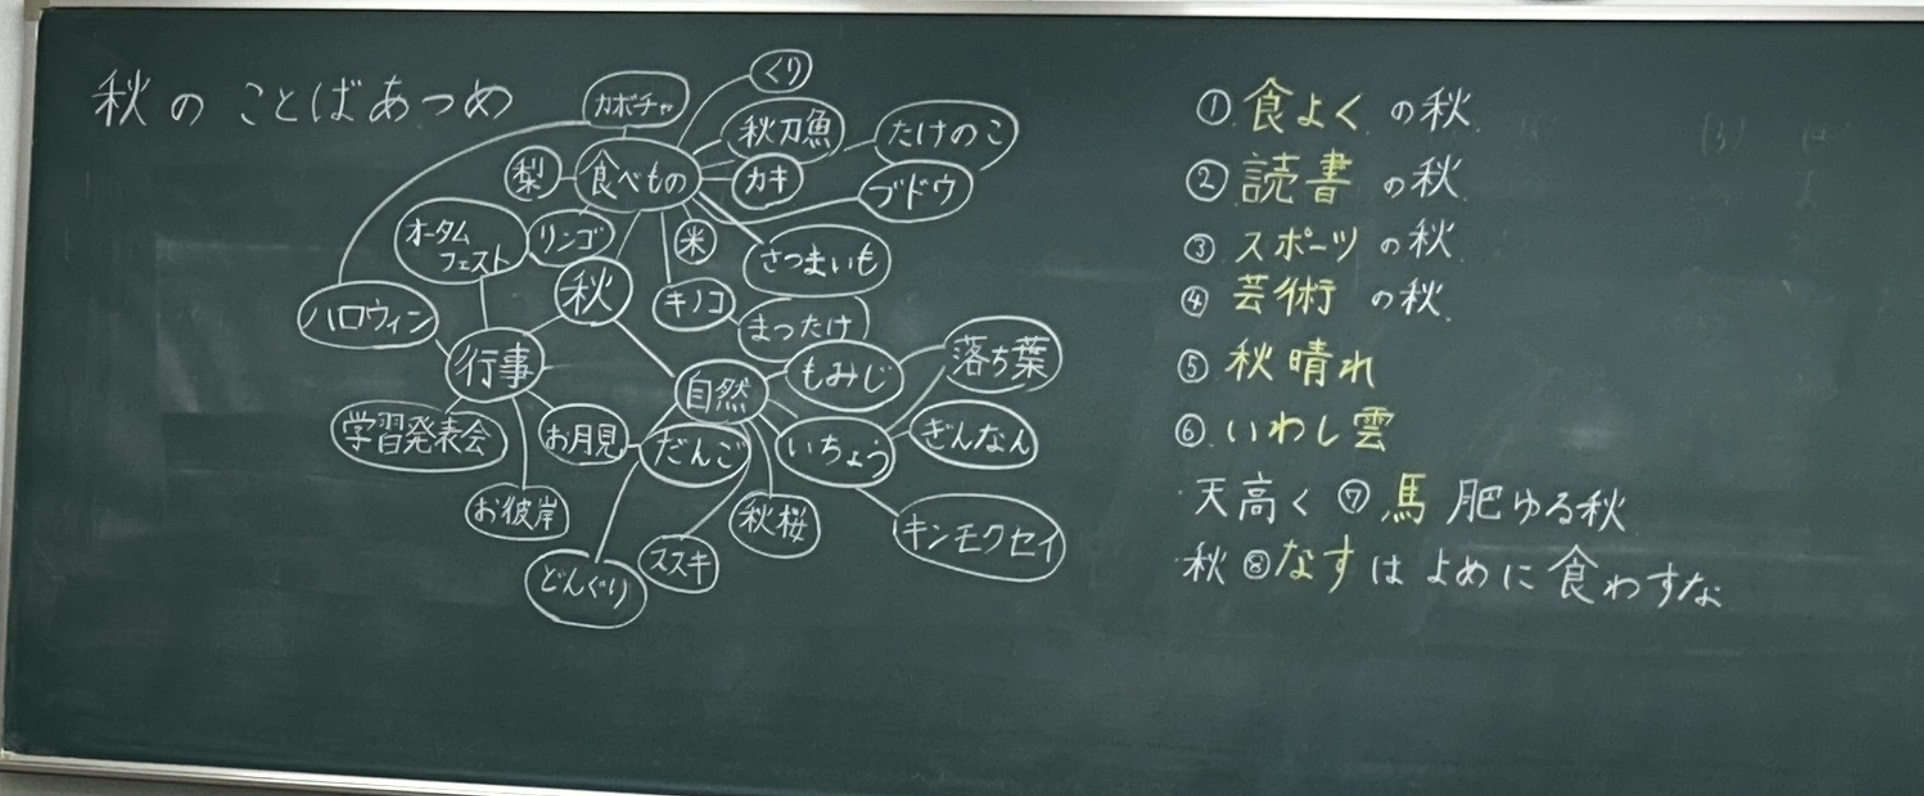 秋のことばあつめ
カボチャ
くり
秋刀魚
たけのこ
梨
食べもの
カキ
ブドウ
オータム
フェスト
リンゴ
米
さつまいも
秋
キノコ
ハロウィン
まったけ
行事
自然
もみじ
落ち葉
学習発表会
お月見
だんご
いちょう
ぎんなん
お彼岸
秋桜
キンモクセイ
どんぐり
ススキ
① 食よくの秋
② 読書の秋
③ スポーツの秋
④ 芸術の秋
⑤ 秋晴れ
⑥ いわし雲
天高く⑦馬肥ゆる秋
秋⑧なすはよめに食わすな